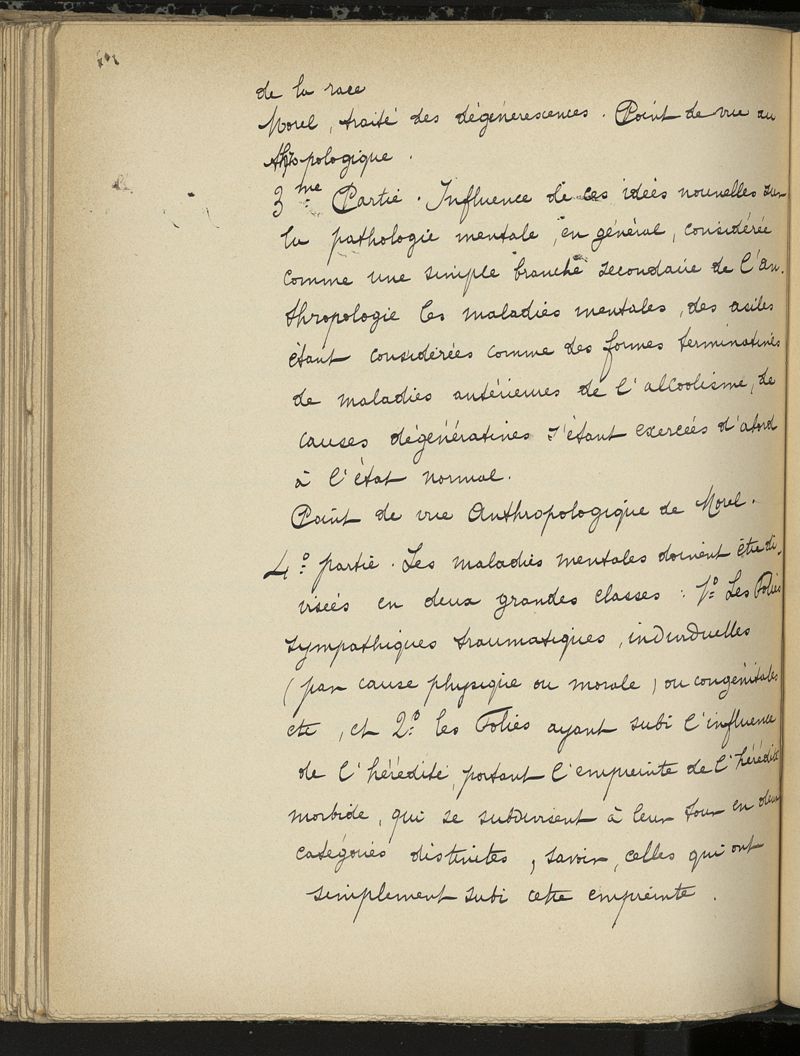 de la race
Morel, traité des dégénerescences. Point de vue an
thropologique.
3me Partie. Influence de ces idées nouvelles sur
la pathologie mentale, en général, considérée
comme une simple branche secondaire de l'an-
thropologie les maladies mentales, des asiles
étant considérées comme des formes terminatives
de maladies antérieures de l'alcoolisme, de
causes dégénératives s'étant exercées d'abord
à l'état normal.
Point de vue Anthropologique de Morel.
4o partie. Les maladies mentales doivent être di-
visées en deux grandes classes : 1o Les Folies
sympathiques traumatiques, individuelles
(par cause physique ou morale) ou congénitales
etc, et 2o les Folies ayant subi l'influence
de l'hérédité, portant l'empreinte de l'hérédité
morbide, qui se subdivisent à leur tour en deux
catégories distinctes, savoir, celles qui ont
simplement subi cette empreinte.